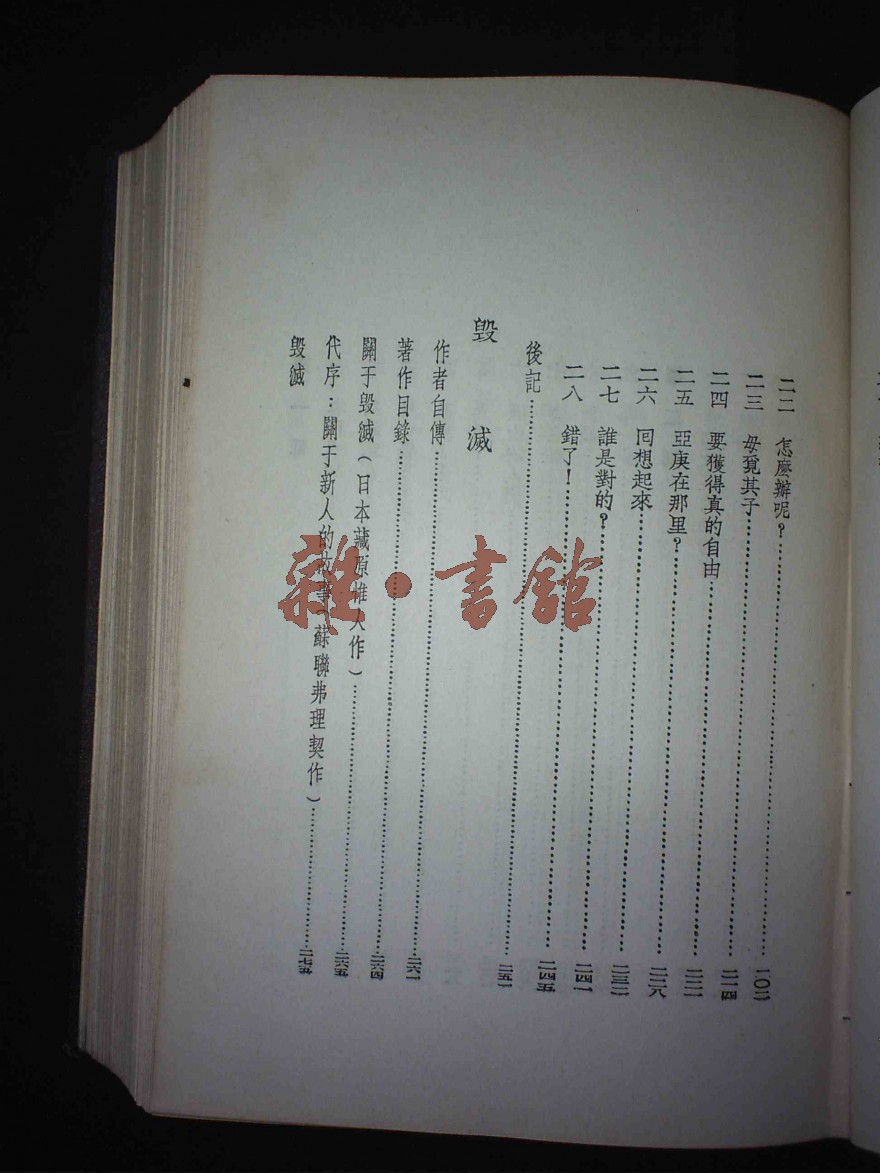 二二 怎麼辦呢?……二〇二
二三 母覓其子……二一四
二四 要獲得真的自由……二二一
二五 亞庚在那里?……二二八
二六 囘想起來……二三二
二七 誰是對的?……二四一
二八 錯了!……二四五
後記……二五一
毀滅
作者自傳……二六一
著作目錄……二六四
關于毀滅(日本藏原惟人作)……二六五
代序:關于新人的故事(蘇聯弗理契作)……二七五
毀滅
雜·書館